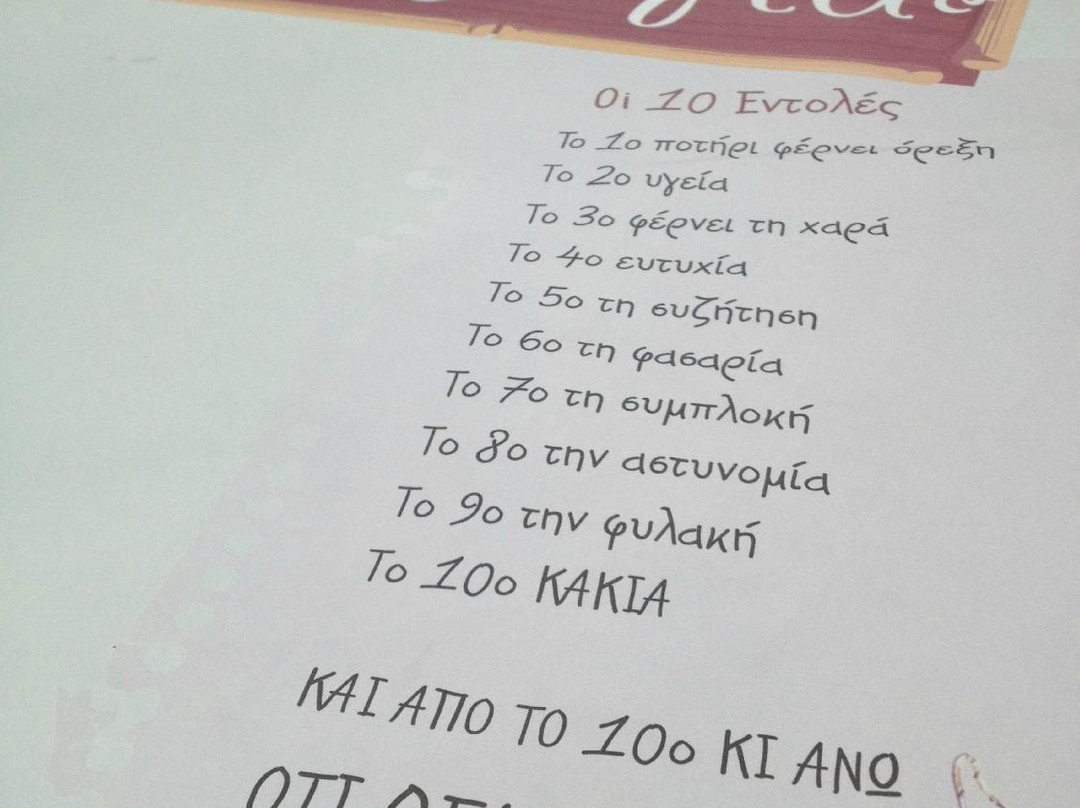 Οι 10 Εντολές
Το 1ο ποτήρι φέρνει όρεξη
Το 2ο υγεία
Το 3ο φέρνει τη χαρά
Το 4ο ευτυχία
Το 5ο τη συζήτηση
Το 6ο τη φασαρία
Το 7ο τη συμπλοκή
Το 8ο την αστυνομία
Το 9ο την φυλακή
Το 10ο ΚΑΚΙΑ
ΚΑΙ ΑΠΟ ΤΟ 10ο ΚΙ ΑΝΩ
ΟΤΙ